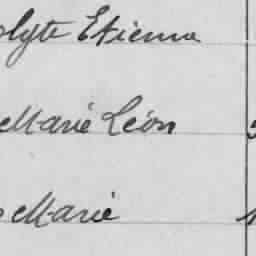 olyte Etienne
Marie Léon
Marie